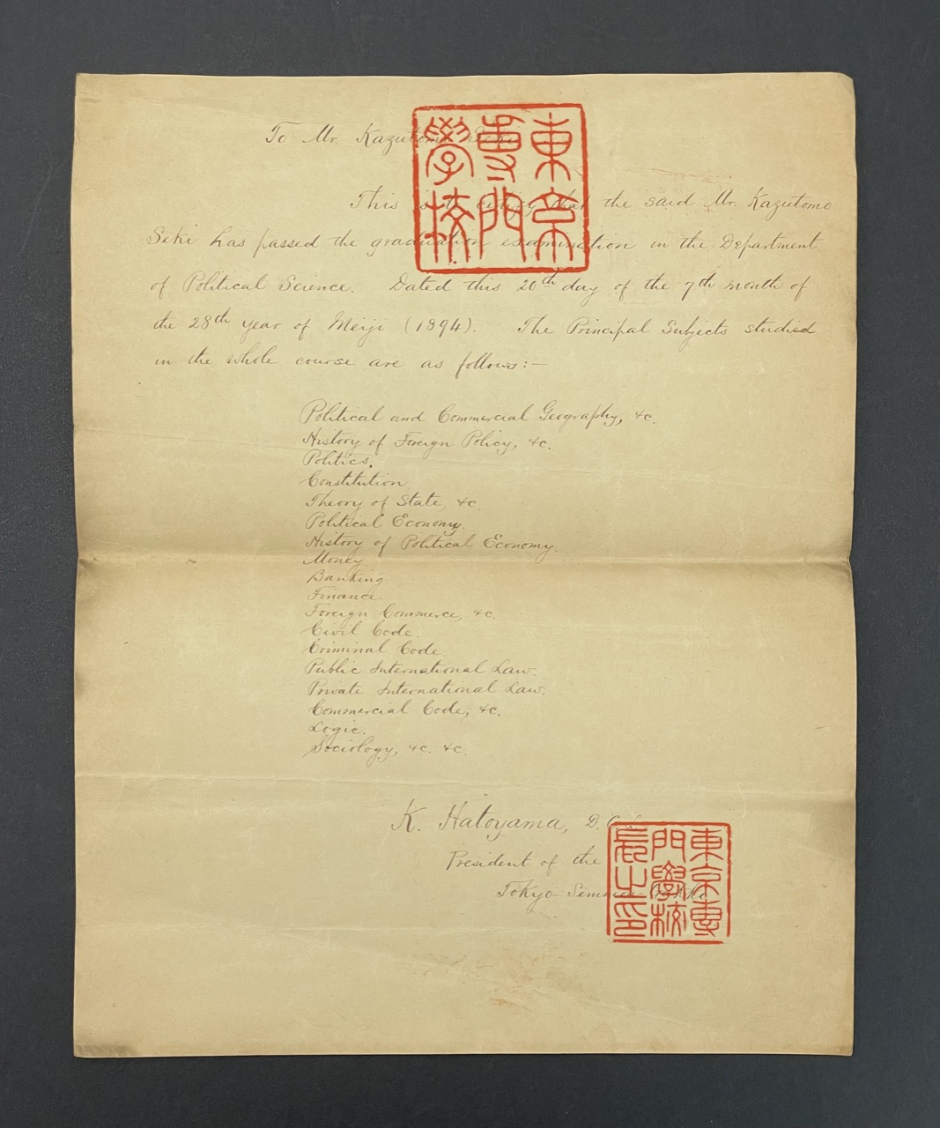 To Mr. Kazutomo Seki
東京
專門
學校
This is to certify that the said Mr. Kazutomo
Seki has passed the graduation examination in the Department
of Political Science. Dated this 20th day of the 7th month of
the 28th year of Meiji (1894). The Principal Subjects studied
in the whole course are as follows:—
Political and Commercial Geography, &c.
History of Foreign Policy, &c.
Politics.
Constitution
Theory of State, &c
Political Economy.
History of Political Economy.
Money
Banking
Finance
Foreign Commerce, &c.
Civil Code
Criminal Code.
Public International Law.
Private International Law.
Commercial Code, &c.
Logic.
Sociology, &c. &c.
K. Hatoyama, D.C.L.
President of the
Tokyo Semmon
東京專
門學校
長之印